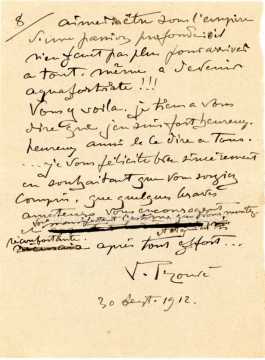 8/ aimer d'être sous l'empire
d'une passion profonde: il
n'en faut pas plus pour arriver
à tout, même à devenir
aquafortiste!!!
Vous y voila. je tiens à vous
dire que j'en suis fort heureux,
heureux aussi de le dire à tous.
... je vous félicite très sincèrement
en souhaitant que vous soyiez
compris, que quelques braves
amateurs vous encouragent
réconfortante.
après tout effort...
30 Sept. 1912.